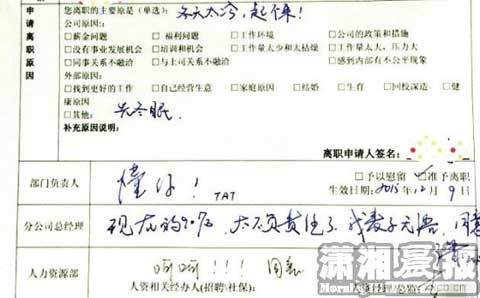 您离职的主要原是(单选): 冬天太冷,起不来!
申请离职原因
公司原因:
□薪金问题 □福利问题 □工作环境 □公司的政策和措施
□没有事业发展机会 □培训和机会 □工作量太少和太枯燥 □工作量太大、压力大
□同事关系不融洽 □与上司关系不融洽 □感到内部有不公平现象
外部原因:
□找到更好的工作 □自己经营生意 □家庭原因 □结婚 □生育 □回校深造 □健
康原因
□其他: 去冬眠.
补充原因说明:
离职申请人签名:
部门负责人 懂你! TAT
□予以慰留 □准予离职
生效日期: 2015年12月9日
分公司总经理 现在的90后,太不负责任了,我表示无语,同意
人力资源部 呵呵!!! 同意
人资相关经办人(招聘\社保):
潇湘晨报